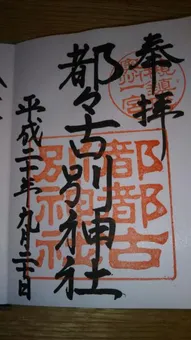 奉拝
都々古別神社
都都古
別神社
平成二十年九月二十日